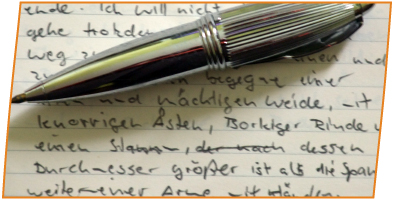 ende. Ich will nicht
gehe trotzdem
weg
begegne einer
und mächtigen Weide, mit
knorrigen Ästen, Borkiger Rinde
einen Stamm, der nach dessen
Durchmesser größer ist als die Span
weite meiner Arme mit Händen.